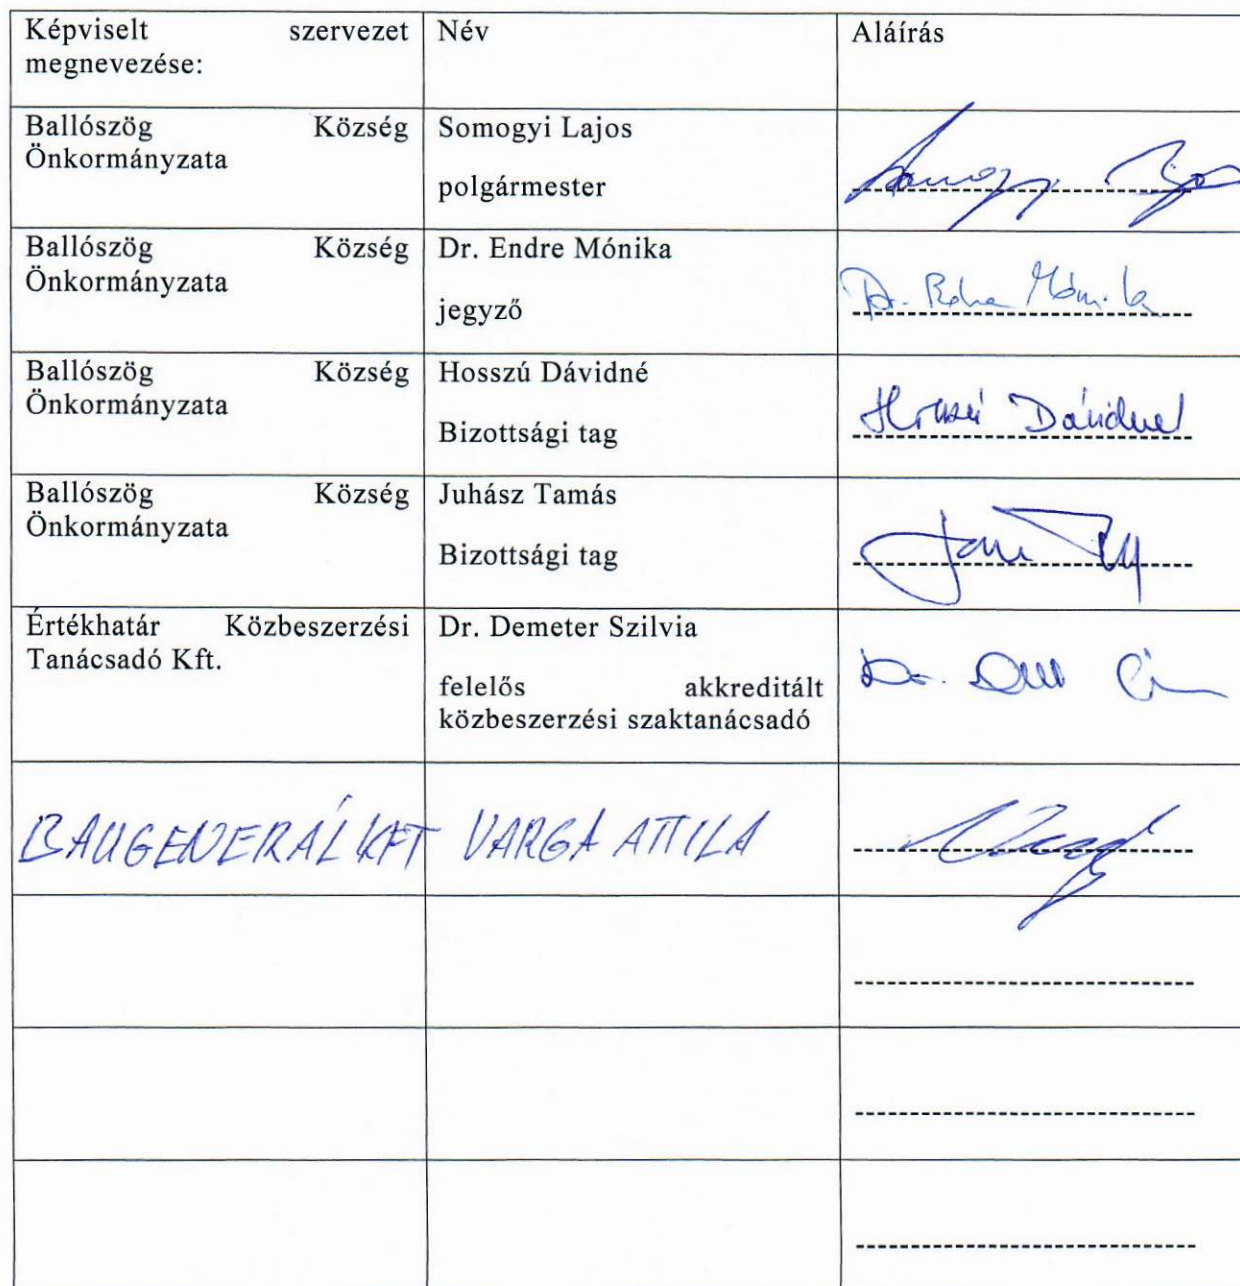 Képviselt szervezet megnevezése:
Név
Aláírás
Ballószög Község Önkormányzata
Somogyi Lajos
polgármester
Ballószög Község Önkormányzata
Dr. Endre Mónika
jegyző
Dr. Endre Mónika
Ballószög Község Önkormányzata
Hosszú Dávidné
Bizottsági tag
Hosszú Dávidné
Ballószög Község Önkormányzata
Juhász Tamás
Bizottsági tag
Értékhatár Közbeszerzési Tanácsadó Kft.
Dr. Demeter Szilvia
felelős akkreditált
közbeszerzési szaktanácsadó
Dr.
BAUGENERÁL KFT
VARGA ATTILA